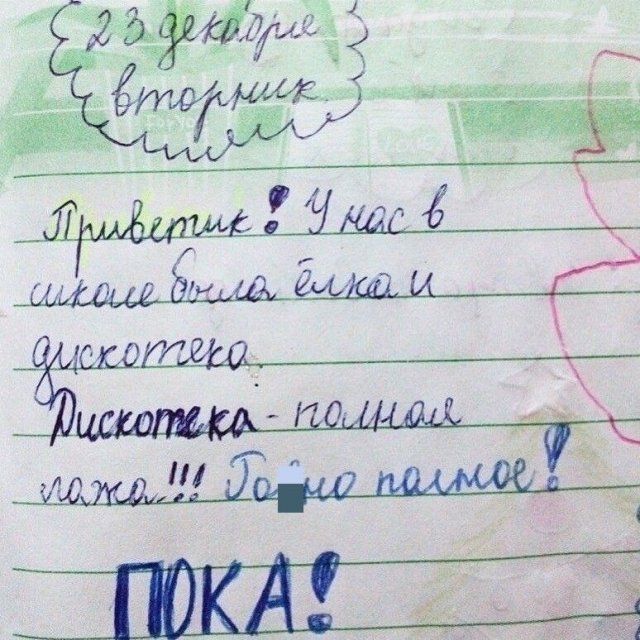 23 декабря
вторник
Приветик! У нас в
школе была ёлка и
дискотека.
Дискотека - полная
лажа!!! Го но полное!
ПОКА!